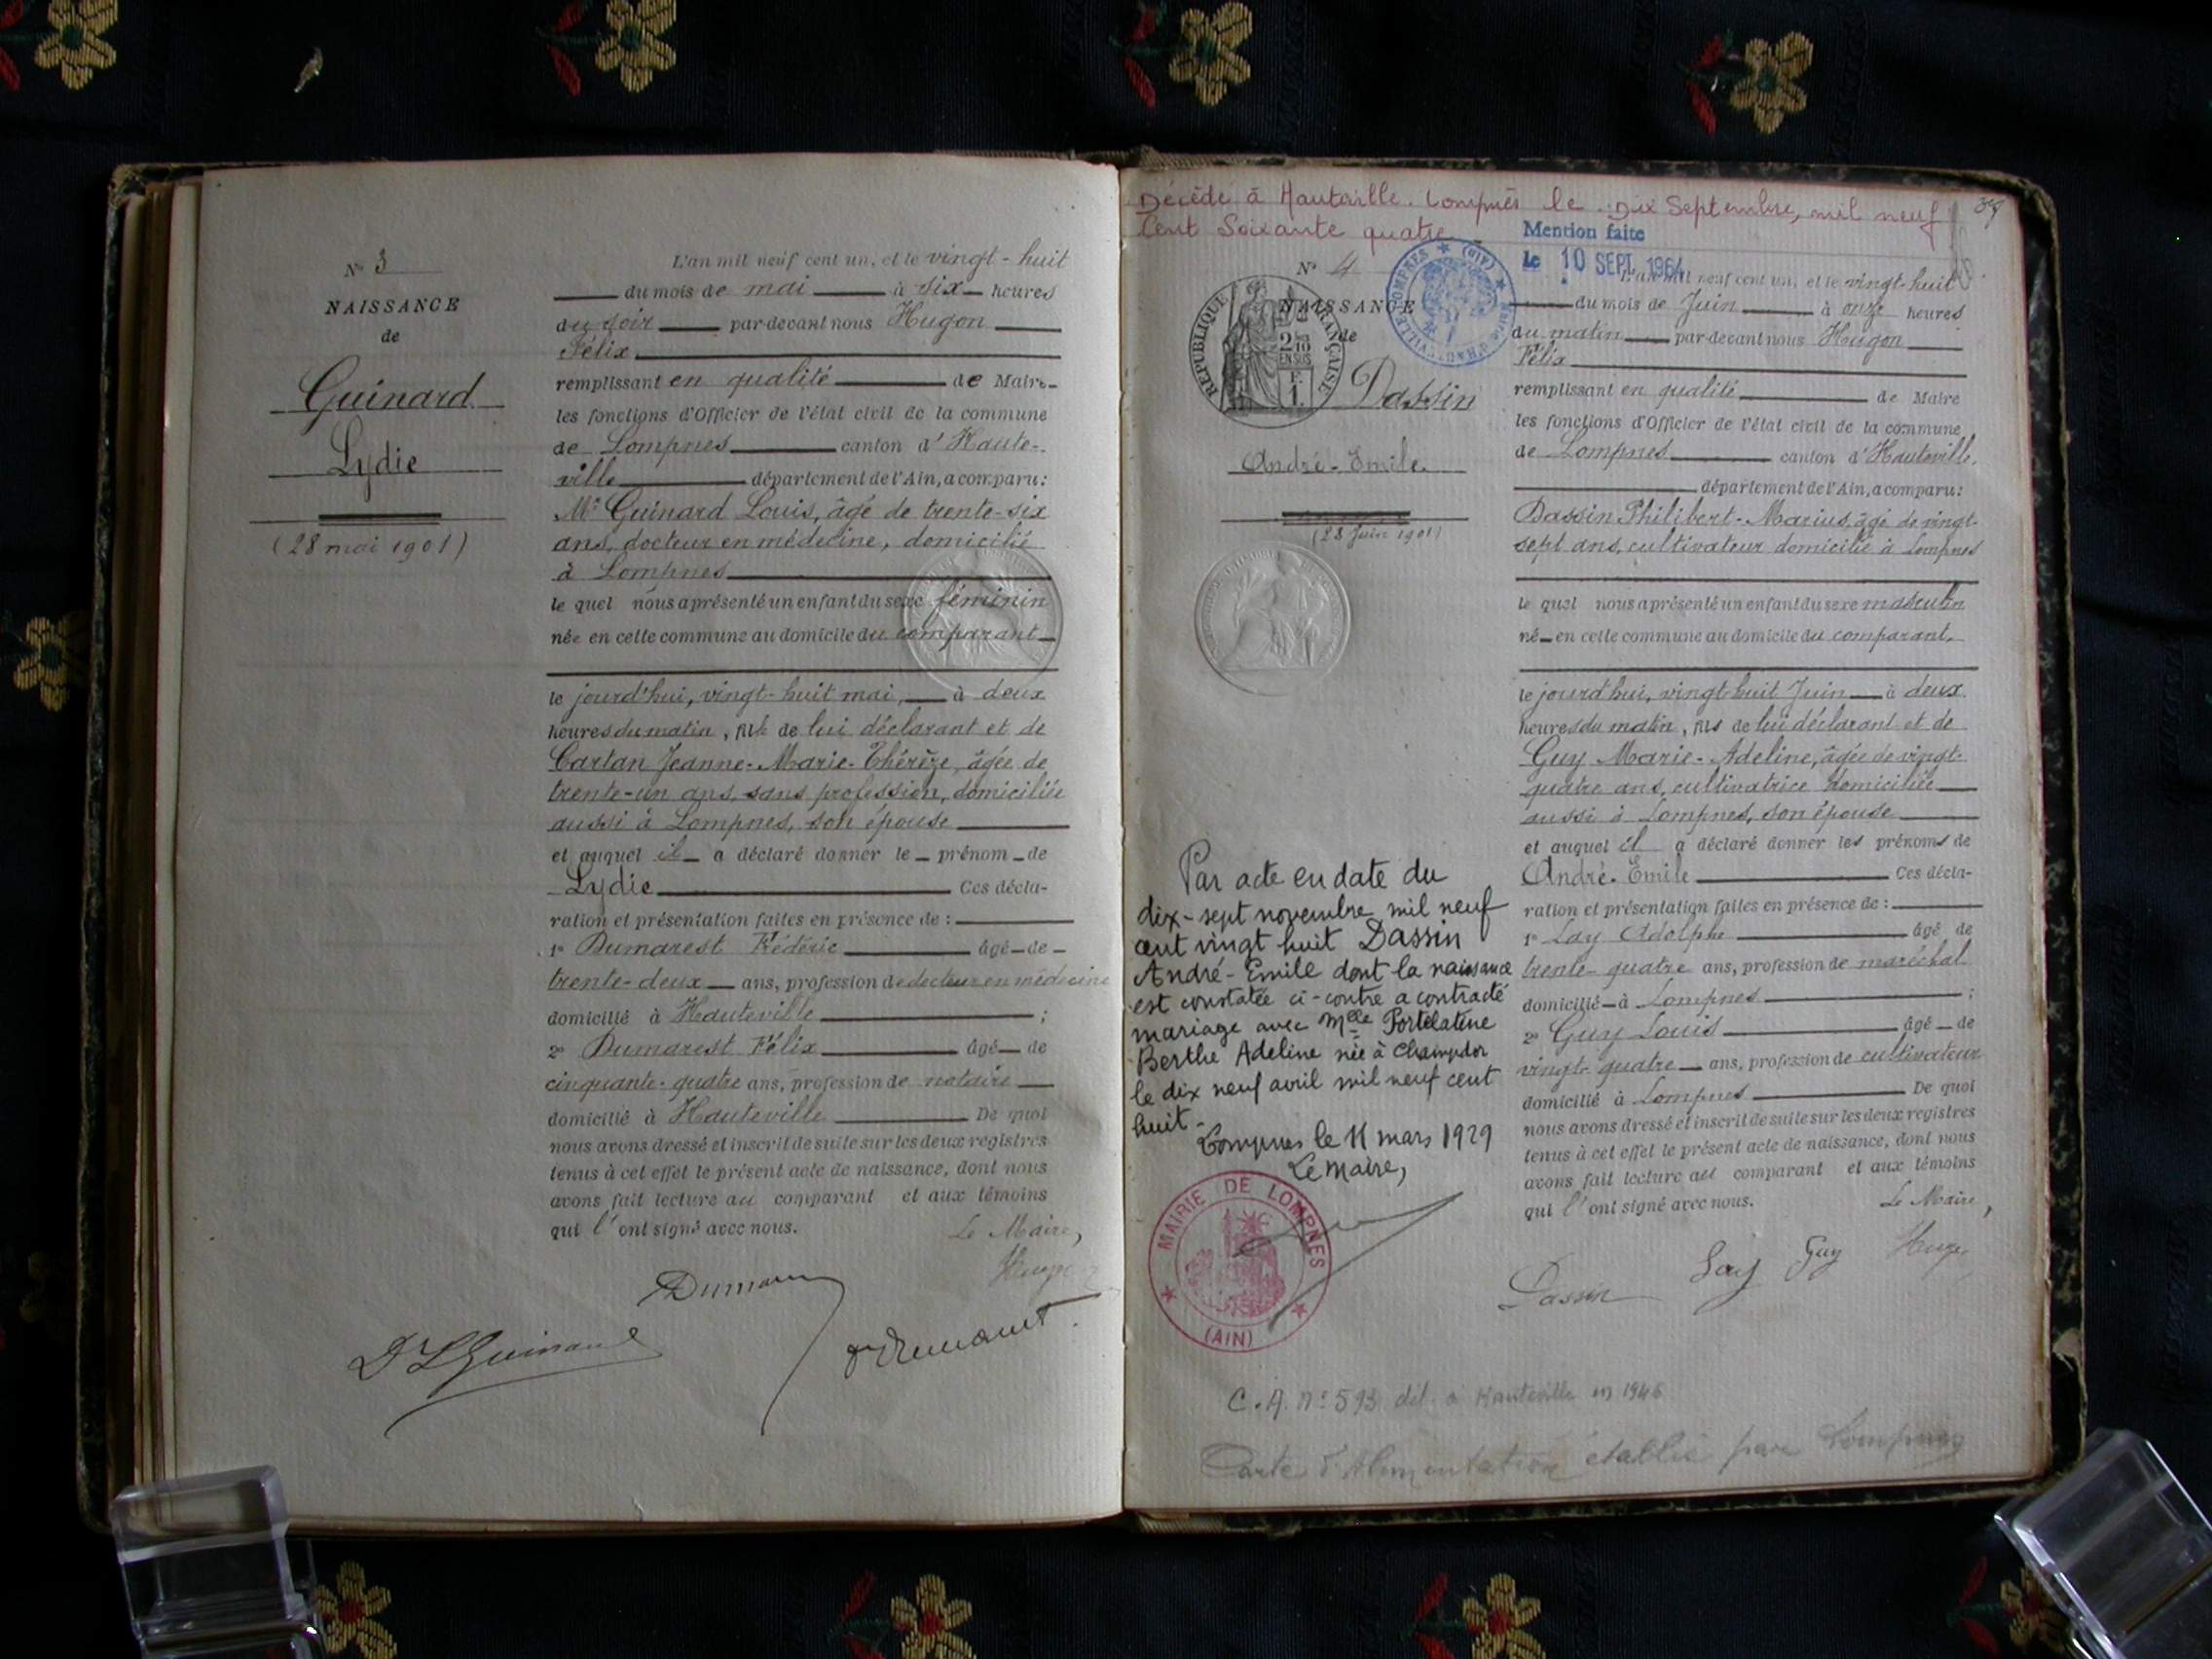 N° 3
NAISSANCE
de
Guinard
Lydie
(28 mai 1901)
L'an mil neuf cent un, et le vingt-huit
du mois de mai à six heures
du soir par-devant nous Hugon
Félix
remplissant en qualité de Maire
les fonctions d'Officier de l'état civil de la commune
de Lompnes canton d'Haute-
ville département de l'Ain, a comparu:
Mr Guinard Louis, âgé de trente-six
ans, docteur en médecine, domicilié
à Lompnes
le quel nous a présenté un enfant du sexe féminin
née en cette commune au domicile du comparant
le jourd'hui, vingt-huit mai, à deux
heures du matin, fille de lui déclarant et de
Cartan Jeanne-Marie-Thérèze, âgée de
trente-un ans, sans profession, domiciliée
aussi à Lompnes, son épouse
et auquel il a déclaré donner le prénom de
Lydie Ces décla-
ration et présentation faites en présence de :
1° Dumarest Frédéric âgé de
trente-deux ans, profession de docteur en médecine
domicilié à Hauteville ;
2° Dumarest Félix âgé de
cinquante-quatre ans, profession de notaire
domicilié à Hauteville De quoi
nous avons dressé et inscrit de suite sur les deux registres
tenus à cet effet le présent acte de naissance, dont nous
avons fait lecture au comparant et aux témoins
qui l'ont signé avec nous.
Le Maire,
Hugon
Dumarest
Dr L Guinard
Décédé à Hauteville-Lompnès le Dix Septembre, mil neuf
Cent Soixante quatre
Mention faite
Le 10 SEPT. 1964
N° 4
NAISSANCE
de
RÉPUBLIQUE FRANÇAISE
Dassin
André-Emile
(28 Juin 1901)
L'an mil neuf cent un, et le vingt-huit
du mois de Juin à onze heures
du matin par-devant nous Hugon
Félix
remplissant en qualité de Maire
les fonctions d'Officier de l'état civil de la commune
de Lompnes canton d'Hauteville,
département de l'Ain, a comparu:
Dassin Philibert-Marius, âgé de vingt-
sept ans, cultivateur domicilié à Lompnes
le quel nous a présenté un enfant du sexe masculin
né en cette commune au domicile du comparant,
le jourd'hui, vingt-huit Juin à deux
heures du matin, fils de lui déclarant et de
Guy Marie-Adeline, âgée de vingt-
quatre ans, cultivatrice domiciliée
aussi à Lompnes, son épouse
et auquel il a déclaré donner les prénoms de
André-Emile Ces décla-
ration et présentation faites en présence de :
1° Lay Adolphe âgé de
trente-quatre ans, profession de maréchal
domicilié à Lompnes ;
2° Guy Louis âgé de
vingt-quatre ans, profession de cultivateur
domicilié à Lompnes De quoi
nous avons dressé et inscrit de suite sur les deux registres
tenus à cet effet le présent acte de naissance, dont nous
avons fait lecture au comparant et aux témoins
qui l'ont signé avec nous.
Le Maire,
Dassin Lay Guy Hugon
Par acte en date du
dix-sept novembre mil neuf
cent vingt huit Dassin
André-Emile dont la naissance
est constatée ci-contre a contracté
mariage avec Melle Portelatine
Berthe Adeline née à Champdor
le dix neuf avril mil neuf cent
huit.
Lompnes le 11 mars 1929
Le Maire,
MAIRIE DE LOMPNES
(AIN)
C.A. N° 593 dél. à Hauteville en 1946
Carte d'Alimentation établie par Lompnes